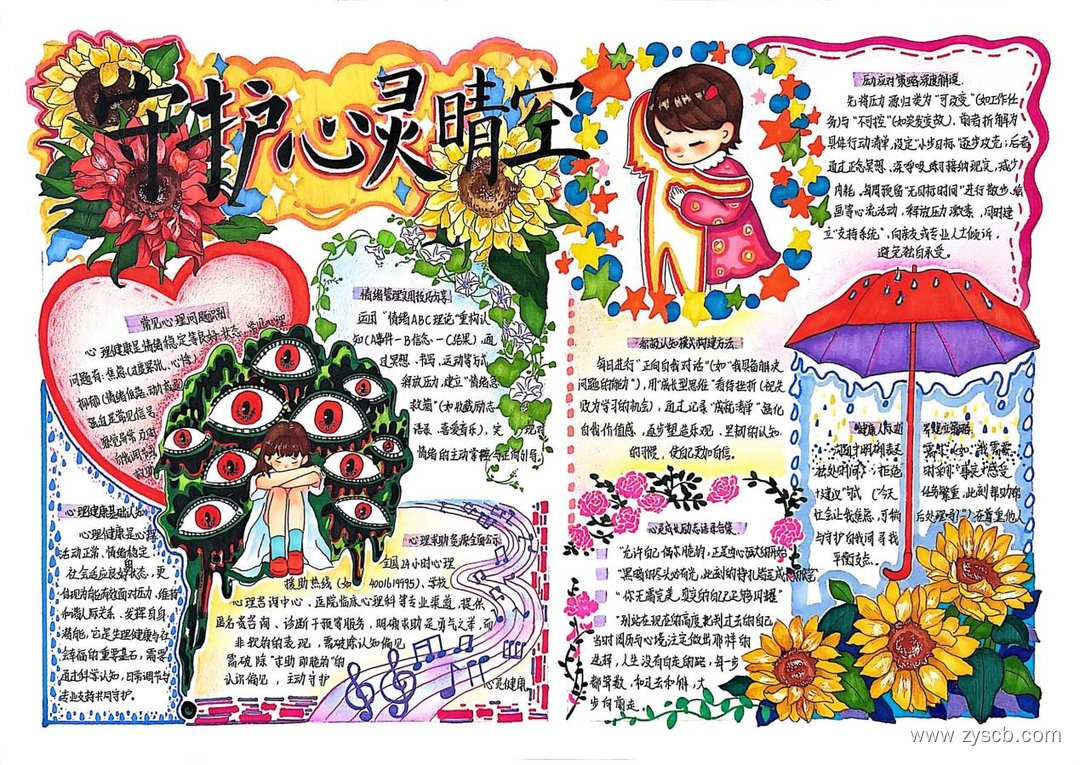 守护心灵晴空
常见心理问题识别
心理健康是情绪稳定等良好状态,常见心理
问题有:焦虑(过度紧张、心悸)
抑郁(情绪低落、动力减退)
情绪管理实用技巧分享
运用“情绪ABC理论”重构认
知(A事件-B信念-C结果),通
过冥想、书写、运动等方式
释放压力,建立“情绪急
救箱”(如收藏励志
语录、喜爱音乐),实现对
情绪的主动掌控与正向引导。
心理健康基础认知
心理健康是心理
活动正常、情绪稳定、
社会适应良好状态,更
体现为能有效面对压力、维持
和谐人际关系、发挥自身
潜能,它是生理健康与社
会幸福的重要基石,需要
通过科学认知、日常调节与
专业支持共同守护。
心理求助资源全面公示
全国24小时心理
援助热线(如4001619995)、学校
心理咨询中心、医院临床心理科等专业渠道,提供
匿名者咨询、诊断干预等服务,明确求助是勇气之举,而
非软弱的表现,需破除认知偏见
需破除“求助即脆弱”的
认识偏见,主动守护
心灵健康。
压力应对策略深度解读
先将压力源归类为“可改变”(如工作任
务)与“不可控”(如突发变故),前者拆解为
具体行动清单,设定小步目标逐步攻克;后者
通过正念冥想、深呼吸练习接纳现实,减少
内耗,每周预留“无目标时间”进行散步、绘
画等心流活动,释放压力激素,同时建
立“支持系统”,向亲友或专业人士倾诉,
避免独自承受。
积极认知模式构建方法
每日进行“正向自我对话”(如“我具备解决
问题的能力”),用“成长型思维”看待挫折(视失
败为学习的机会),通过记录“成就清单”强化
自我价值感,逐步塑造乐观、坚韧的认知
的习惯,使自己更加自信。
心灵成长励志语录合集
“允许自己偶尔脆弱,正是内心强大的开始
“黑暗的尽头必有光,此刻的挣扎皆是成长的勋章
“你无需完美,真实的自己足够闪耀”
“别站在现在的高度批判过去的自己,
当时阅历与心境注定做出那样的
选择,人生没有白走的路,每一步
都算数,和过去和解,大
步向前走。
社会让我焦虑,可稍后处理吗?”),在尊重他人
与守护自我间寻找
平衡支点。
www.zyscb.com